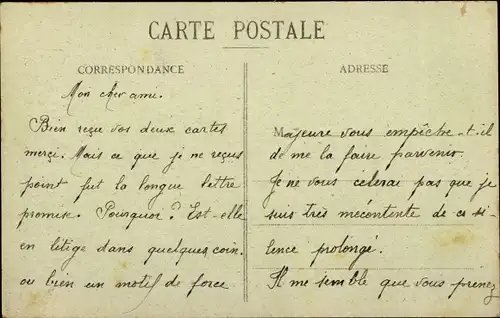 CARTE POSTALE
CORRESPONDANCE
Mon cher ami.
Bien reçu vos deux cartes
merçi. Mais ce que je ne reçus
point fut la longue lettre
promise. Pourquoi? Est-elle
en litige dans quelques coin.
ou bien un motif de force
ADRESSE
Majeure vous empêche-t-il
de me la faire parvenir.
Je ne vous cèlerai pas que je
suis très mécontente de ce si-
lence prolongé.
Il me semble que vous prenez